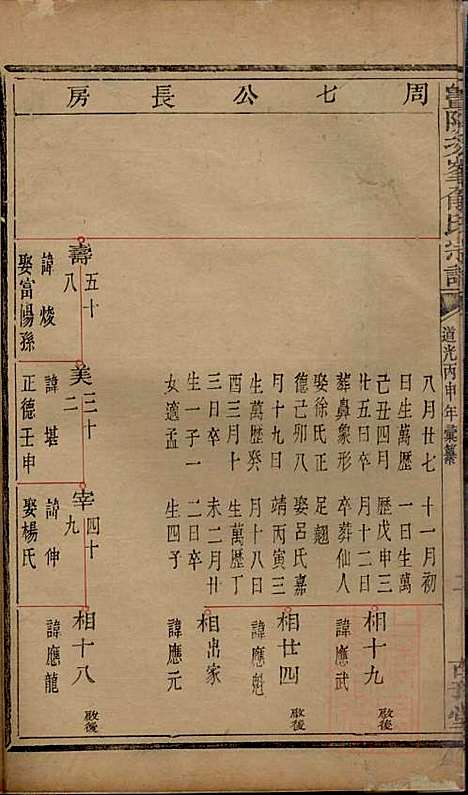 暨陽次峯俞氏宗譜
道光丙申年彙纂
周七公長房
八月廿七
日生萬歷
己丑四月
廿五日卒
葬鼻象形
娶徐氏正
德己卯八
月十九日
生萬歷癸
酉三月十
三日卒
生一子一
女適孟
十一月初
一日生萬
歷戊申三
月十二日
卒葬仙人
足翹
娶呂氏嘉
靖丙寅三
月十八日
生萬歷丁
未二月廿
二日卒
生四子
相十九
諱應武
相廿四
諱應魁
相出家
諱應元
壽八
五十
諱焌
娶富陽孫
美二
三十
諱堪
正德壬申
宰九
四十
諱伸
娶楊氏
相十八
諱應龍